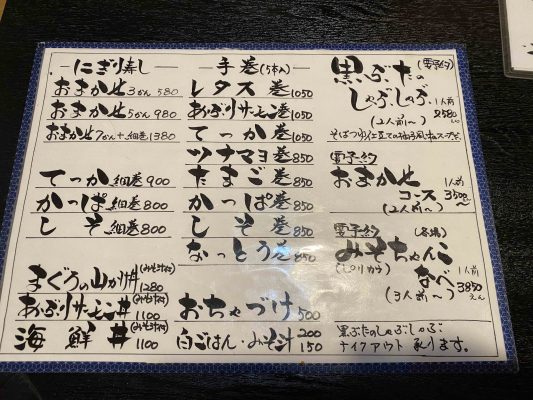 にぎり寿し
おまかせ 3かん 580
おまかせ 5かん 980
おまかせ 7かん+細巻 1380
てっか 細巻 900
かっぱ 細巻 800
しそ 細巻 800
まぐろの山かけ丼 (みそ汁付) 1280
あぶりサーモン丼 (みそ汁付) 1100
海鮮丼 (みそ汁付) 1100
手巻 (5本入)
レタス巻 1050
あぶりサーモン巻 1050
てっか巻 1050
ツナマヨ巻 850
たまご巻 850
かっぱ巻 850
しそ巻 850
なっとう巻 850
おちゃづけ 500
白ごはん・みそ汁 200 150
黒ぶたの (要予約)
しゃぶしゃぶ 1人前
(2人前〜) 3580
そばつゆ仕立ての柚子風味スープで
要予約
おまかせ
コース 1人前 3500
(2人前〜)
要予約 (冬場)
みそちゃんこ
なべ 1人前 3850えん
(3人前〜)
黒ぶたのしゃぶしゃぶ
テイクアウト 承ります。